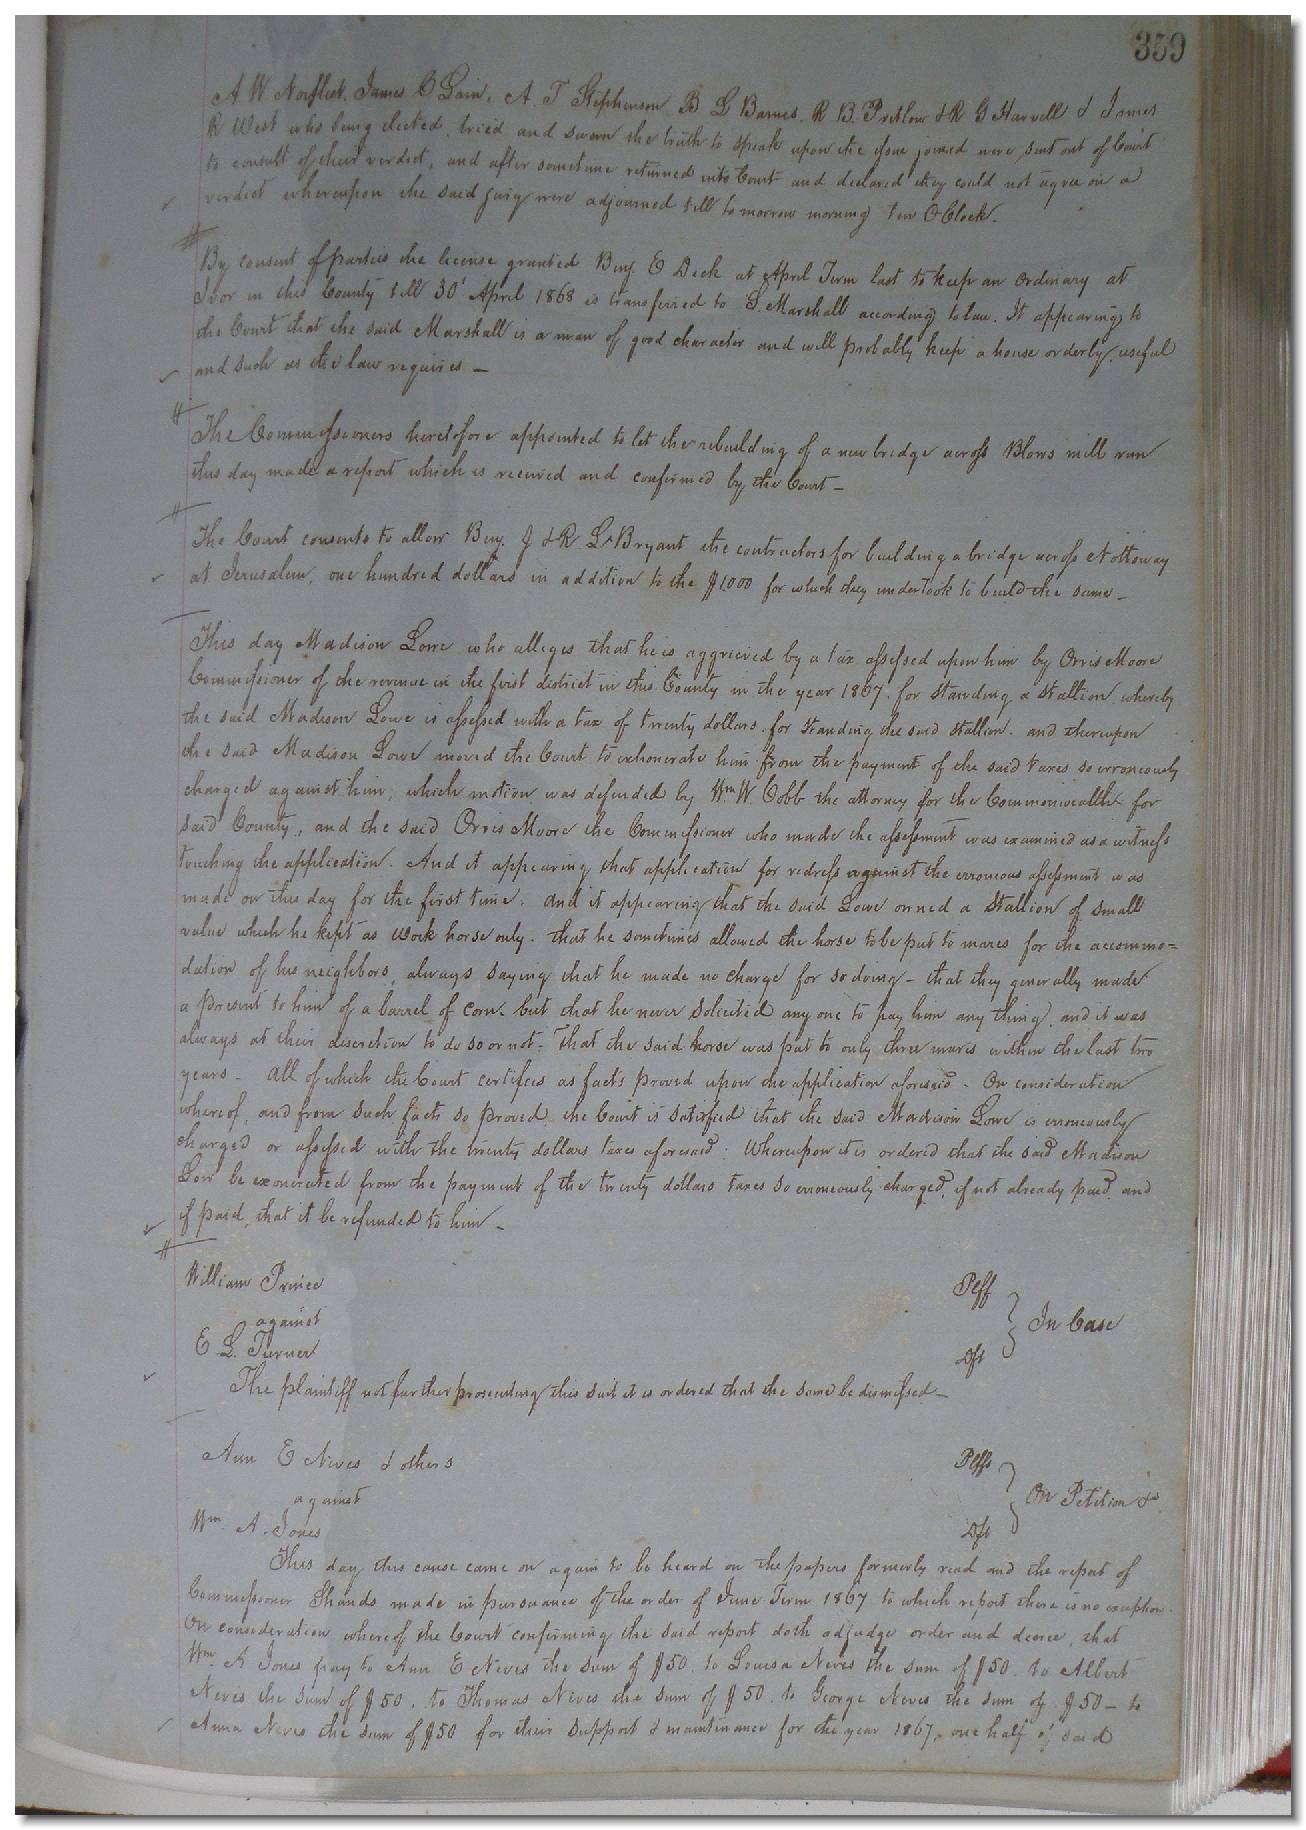 359
A. W Norfleet, James C Lain, A. T Stephenson B L Barnes. R. B. Pretlow & R G Harvell & James
R West who being elected, tried and sworn the truth to speak upon the issue joined were sent out of Court
to consult of their verdict, and after sometime returned into Court and declared they could not agree on a
verdict whereupon the said jury were adjourned till tomorrow morning ten O Clock.
By consent of parties the license granted Benj. E Deck at April Term last to keep an ordinary at
Ivor in this County till 30' April 1868 is transferred to S. Marshall according to law. It appearing to
the Court that the said Marshall is a man of good character and will probably keep a house orderly, useful
and such as the law requires –
The Commissioners heretofore appointed to let the rebuilding of a new bridge across Blows mill run
this day made a report which is received and confirmed by the Court –
The Court consents to allow Benj. J & R L Bryant the contractors for building a bridge across Nottoway
at Jerusalem, one hundred dollars in addition to the $1000 for which they undertook to build the same –
This day Madison Lowe who alleges that he is aggrieved by a tax assessed upon him by Orris Moore
Commissioner of the revenue in the first district in this County in the year 1867. for standing a stallion, whereby
the said Madison Lowe is assessed with a tax of twenty dollars. for standing the said stallion. and thereupon
the said Madison Lowe moved the Court to exhonerate him from the payment of the said taxes so erroneously
charged against him; which motion was defended by Wm W. Cobb the attorney for the Commonwealth for
said County, and the said Orris Moore the Commissioner who made the assessment was examined as a witness
touching the application. And it appearing that application for redress against the erroneous assessment was
made on this day for the first time. and it appearing that the said Lowe owned a stallion of small
value which he kept as work horse only. that he sometimes allowed the horse to be put to mares for the accommo=
dation of his neighbors, always saying that he made no charge for so doing – that they generally made
a present to him of a barrel of corn. but that he never solicited any one to pay him any thing, and it was
always at their discretion to do so or not. That the said horse was put to only three mares within the last two
years – All of which the Court certifies as facts proved upon the application aforesaid – On consideration
whereof, and from such facts so proved, the Court is satisfied that the said Madison Lowe is erroneously
charged or assessed with the twenty dollars taxes aforesaid; Whereupon it is ordered that the said Madison
Low be exonerated from the payment of the twenty dollars taxes so erroneously charged, if not already paid, and
if paid, that it be refunded to him –
William Prince Plff
against } In Case
E. L. Turner Dft
The plaintiff not further prosecuting this suit it is ordered that the same be dismissed –
Ann E Neves & others Plffs
against } On Petition &c
Wm. A. Jones Dft
This day this cause came on again to be heard on the papers formerly read and the report of
Commissioner Shands made in pursuance of the order of June Term 1867 to which report there is no exception.
On consideration whereof the Court confirming the said report doth adjudge order and decree, that
Wm A Jones pay to Ann E Neves the sum of $50. to Louisa Neves the sum of $50. to Albert
Neves the sum of $50. to Thomas Neves the sum of $50. to George Neves the sum of $50 – to
Anna Neves the sum of $50 for their support & maintinance for the year 1867, one half of said